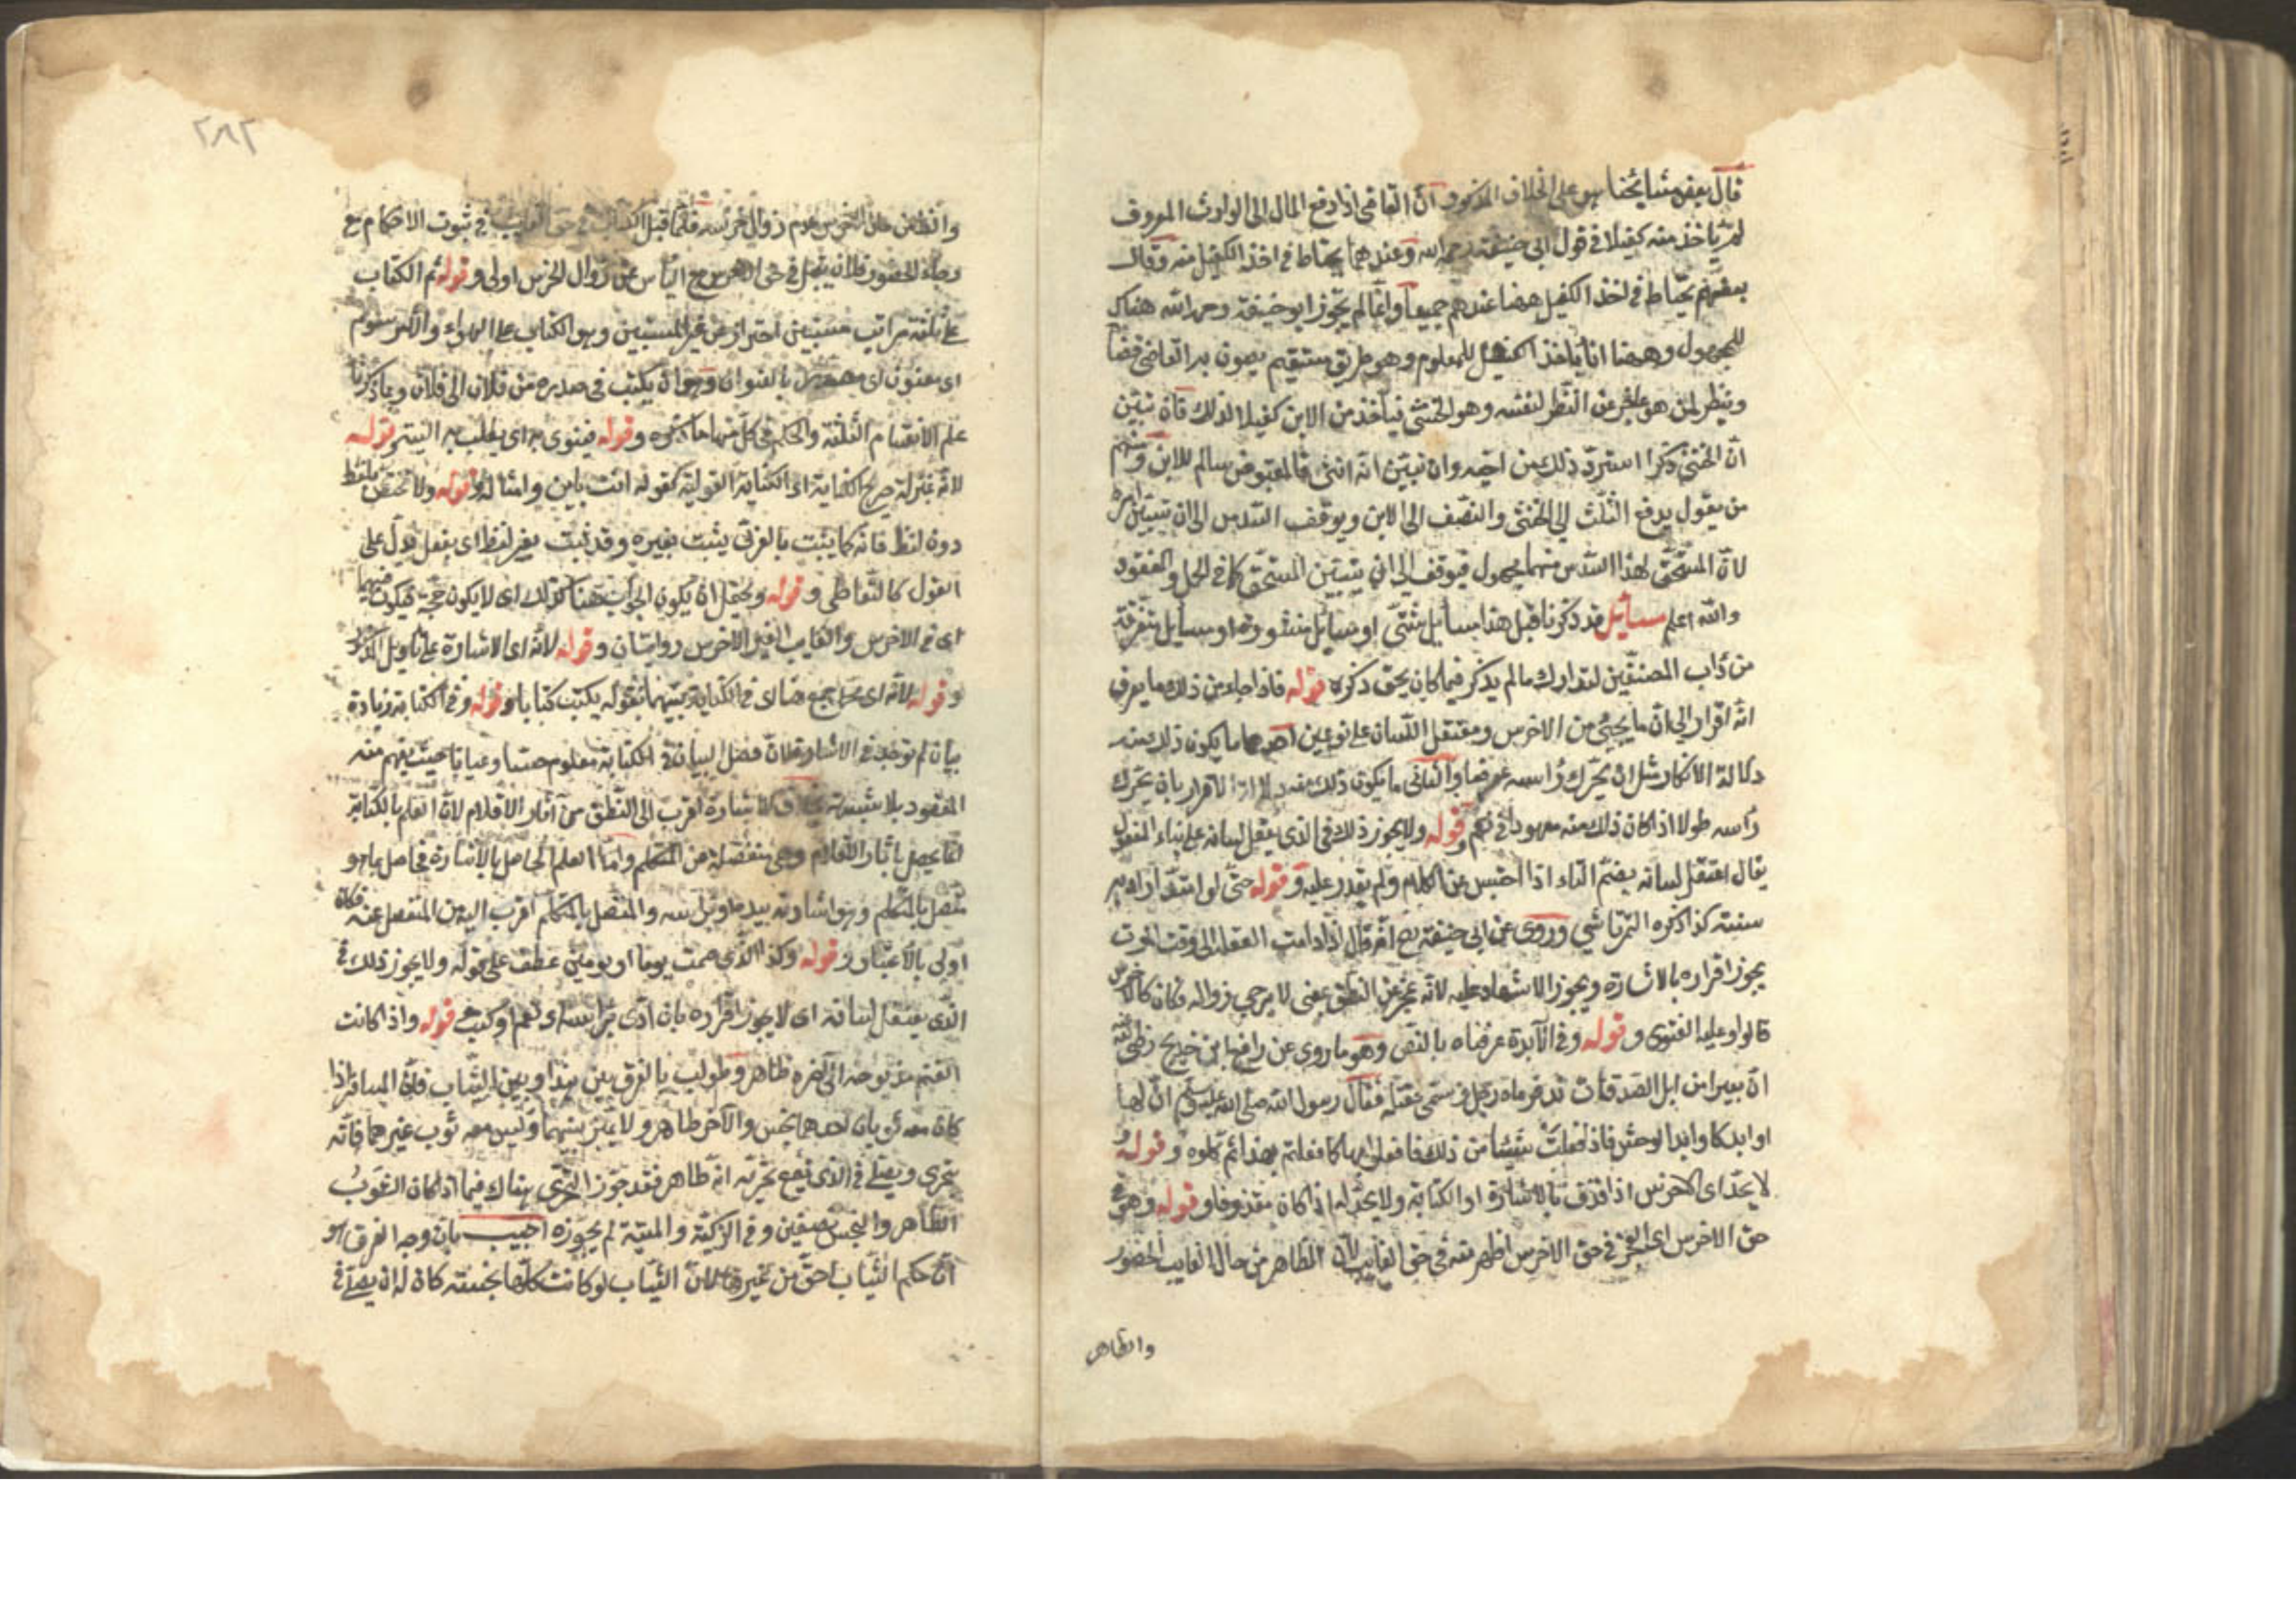 قال بعض مشايخنا هو على الخلاف المذكور ان القاضى اذا دفع المال الى الوارث المعروف
لم ياخذ منه كفيلا فى قول ابى حنيفة رحمه الله وعندهما يحتاط فى اخذ الكفيل منه وقال
بعضهم يحتاط فى اخذ الكفيل ههنا عندهم جميعا وانما لم يجوز ابو حنيفة رحمه الله هناك
للمجهول وههنا انما ياخذ الكفيل للمعلوم وهو طريق مستقيم يصون به القاضى قضاءه
وينظر لمن هو عاجز عن النظر لنفسه وهو الخنثى فياخذ من الابن كفيلا لذلك فان تبين
ان الخنثى ذكر استرد ذلك من اخيه وان تبين انه انثى فالمقبوض سالم للابن ومنهم
من يقول يدفع الثلث الى الخنثى والنصف الى الابن ويوقف السدس الى ان يتبين امره
لان المستحق لهذا السدس منهما مجهول فيوقف الى ان يتبين المستحق كما فى الحمل والمفقود
والله اعلم مسائل قد ذكرنا قبل هذا مسائل شتى او مسائل منثورة او مسائل متفرقة
من داب المصنفين لتدارك ما لم يذكر فيما كان يحق ذكره قوله فاذا جاء من ذلك ما يعرف
انه اقرار الى ان ما يجئ من الاخرس ومعتقل اللسان على نوعين احدهما ما يكون ذلك منه
دلالة الانكار مثل ان يحرك راسه عرضا والثانى ما يكون ذلك منه دلالة الاقرار بان يحرك
راسه طولا اذا كان ذلك منه معهودا فى نعم وقوله ولا يجوز ذلك فى الذى يعتقل لسانه على بناء المفعول
يقال اعتقل لسانه بضم التاء اذا احتبس عن الكلام ولم يقدر عليه وقوله حتى لو امتد اراد به
سنة كذا ذكره التمرتاشي وروى عن ابى حنيفة رح انه قال اذا دامت العقلة الى وقت الموت
يجوز اقراره بالاشارة ويجوز الاشهاد عليه لانه عجز عن النطق بمعنى لا يرجى زواله فكان كالاخرس
قالوا وعليه الفتوى وقوله وفى الآبدة عرفناه بالنص وهو ما روى عن رافع بن خديج رضى الله عنه
ان بعيرا من ابل الصدقات ند فرماه رجل فسمى فقتله فقال رسول الله صلى الله عليه وسلم ان لها
اوابد كاوابد الوحش فاذا فعلت شيئا من ذلك فافعلوا بها كما فعلتم بهذا ثم كلوه وقوله و
لا يحد اى الاخرس اذا قذف بالاشارة او الكتابة ولا يحد له اذا كان مقذوفا وقوله وهو فى
حق الاخرس اى العجز فى حق الاخرس اظهر منه فى حق الغايب لان الظاهر من حال الغايب الحضور
والظاهر
٢٨٢
والظاهر من حال الاخرس عدم زوال خرسه فلما قبل الكتاب فى حق الغايب فى ثبوت الاحكام مع
رجاء الحضور فلان يقبل فى حق الاخرس مع الياس عن زوال الخرس اولى وقوله ثم الكتاب
على ثلثة مراتب مستبين احتراز عن غير المستبين وهو الكتاب على الهواء والماء مرسوم
اى معنون اى مصدر بالعنوان وهو ان يكتب فى صدره من فلان الى فلان وبما ذكرنا
علم الاقسام الثلثة والحكم فى كل منها ما ذكره وقوله فينوى به اى يطلب به النية وقوله
لانه بمنزلة صريح الكناية اى الكناية القولية كقوله انت باين وامثاله وقوله ولا تختص بلفظ
دون لفظ فانه كما يثبت بالعربى يثبت بغيره وقد ثبت بغير لفظ اى بفعل يدل على
القول كالتعاطى وقوله ويحتمل ان يكون الجواب هنا كذلك اى لا يكون حجة فيكون فيهما
اى فى الاخرس والغايب الغير الاخرس روايتان وقوله لانه اى الاشارة على تاويل المذكور
وقوله لانه اى محمد جمع هنا اى فى الكتابة بينهما بقوله يكتب كتابا وقوله وفى الكتابة زيادة
بيان لم توجد فى الاشارة لان فضل البيان فى الكتابة معلوم حسا وعيانا حيث يفهم منه
المقصود بلا شبهة بخلاف الاشارة اقرب الى النطق من آثار الاقلام لان العلم بالكتابة
انما يحصل بآثار الاقلام وهى منفصلة عن المتكلم واما العلم الحاصل بالاشارة فحاصل بما هو
متصل بالمتكلم وهو اشارته بيده او براسه والمتصل بالمتكلم اقرب اليه من المنفصل عنه فكان
اولى بالاعتبار وقوله وكذا الذى صمت يوما او يومين عطف على قوله ولا يجوز ذلك فى
الذى يعتقل لسانه اى لا يجوز اقراره بان ادى براسه اى نعم او كتب قوله واذا كانت
الغنم مذبوحة الى آخره ظاهر وطولب بالفرق بين هذا وبين الثياب فان المسافر اذا
كان معه ثوبان احدهما نجس والآخر طاهر ولا يميز بينهما وليس معه ثوب غيرهما فانه
يتحرى ويصلى فى الذى يقع تحريه انه طاهر فقد جوز التحرى هناك فيما اذا كان الثوب
الطاهر والنجس نصفين وفى الذكية والميتة لم يجوزه اجيب بان وجه الفرق هو
ان حكم الثياب اخف من غيرها لان الثياب لو كانت كلها نجسة كان له ان يصلى فى